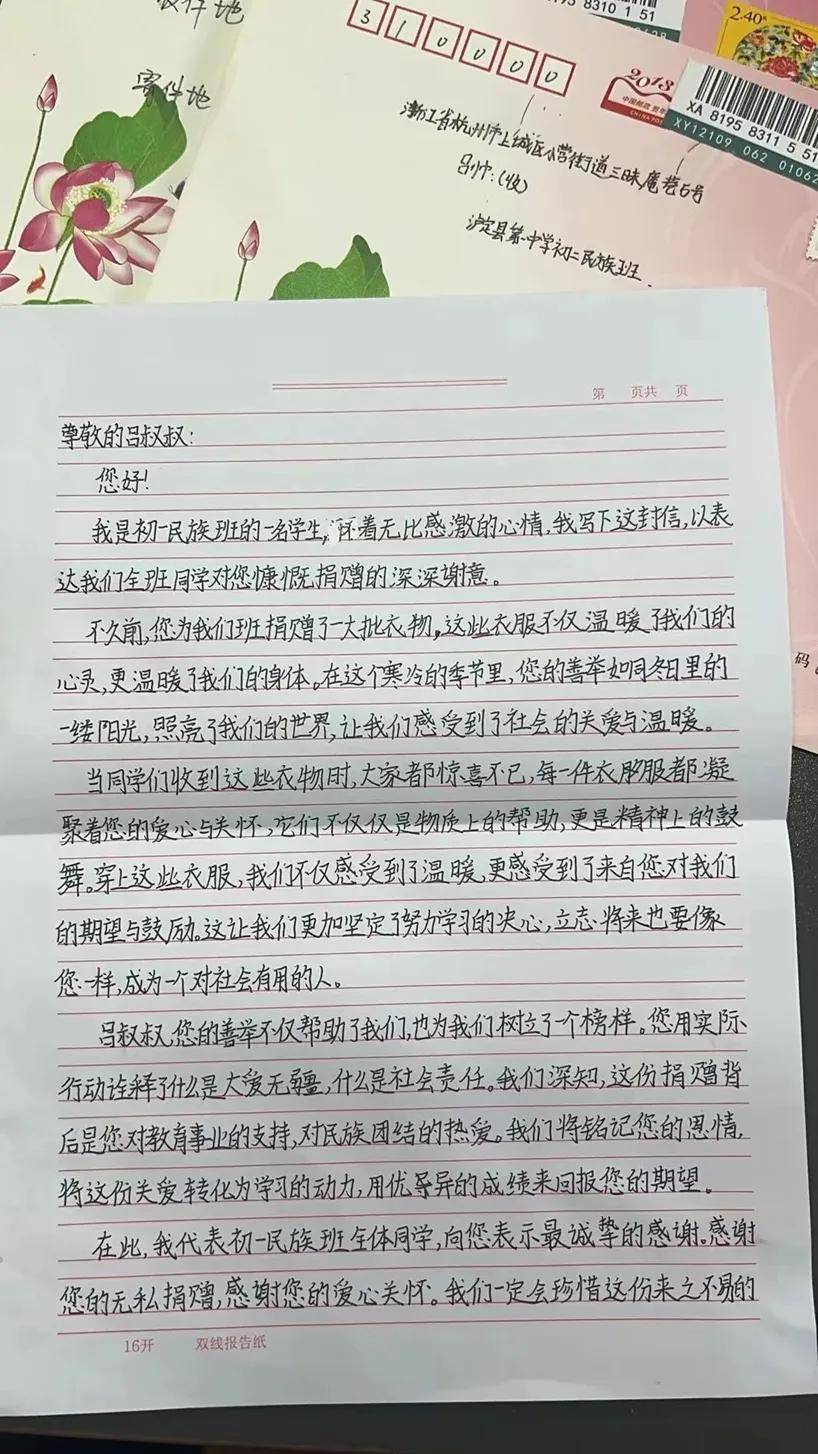 收件地
寄件地
310000
8195 8310 1 51
2.40
2013
中国邮政 贺年
CHINA POST
XA 8195 8311 5 51
XY12109 062 01062
浙江省杭州市上城区小营街道三味庵巷6号
吕帅:(收)
泸定县第一中学初二民族班
码
第 页共 页
尊敬的吕叔叔:
您好!
我是初一民族班的一名学生,怀着无比感激的心情,我写下这封信,以表
达我们全班同学对您慷慨捐赠的深深谢意。
不久前,您为我们班捐赠了一大批衣物,这些衣服不仅温暖了我们的
心灵,更温暖了我们的身体。在这个寒冷的季节里,您的善举如同冬日里的
一缕阳光,照亮了我们的世界,让我们感受到了社会的关爱与温暖。
当同学们收到这些衣物时,大家都惊喜不已,每一件衣服都凝
聚着您的爱心与关怀,它们不仅仅是物质上的帮助,更是精神上的鼓
舞。穿上这些衣服,我们不仅感受到了温暖,更感受到了来自您对我们
的期望与鼓励。这让我们更加坚定了努力学习的决心,立志将来也要像
您一样,成为一个对社会有用的人。
吕叔叔,您的善举不仅帮助了我们,也为我们树立了一个榜样。您用实际
行动诠释了什么是大爱无疆,什么是社会责任。我们深知,这份捐赠背
后是您对教育事业的支持,对民族团结的热爱。我们将铭记您的恩情,
将这份关爱转化为学习的动力,用优异的成绩来回报您的期望。
在此,我代表初一民族班全体同学,向您表示最诚挚的感谢。感谢
您的无私捐赠,感谢您的爱心关怀。我们一定会珍惜这份来之不易的
16开 双线报告纸